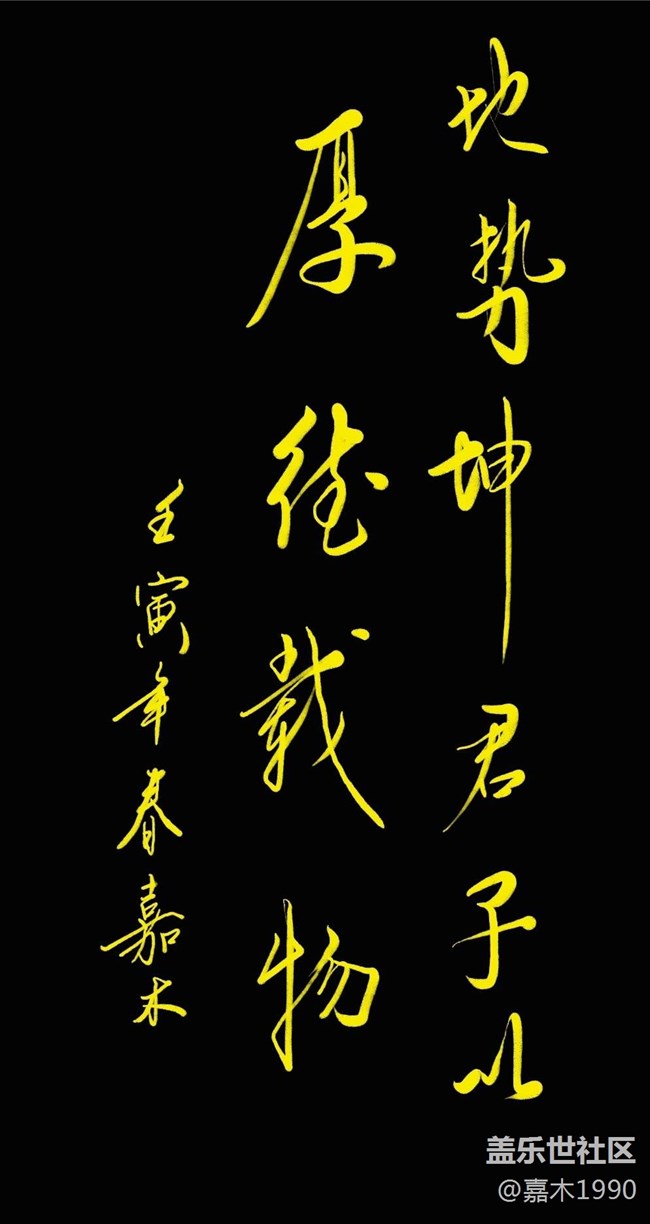 地势坤君子以
厚德载物
壬寅年春嘉木
盖乐世社区
@嘉木1990